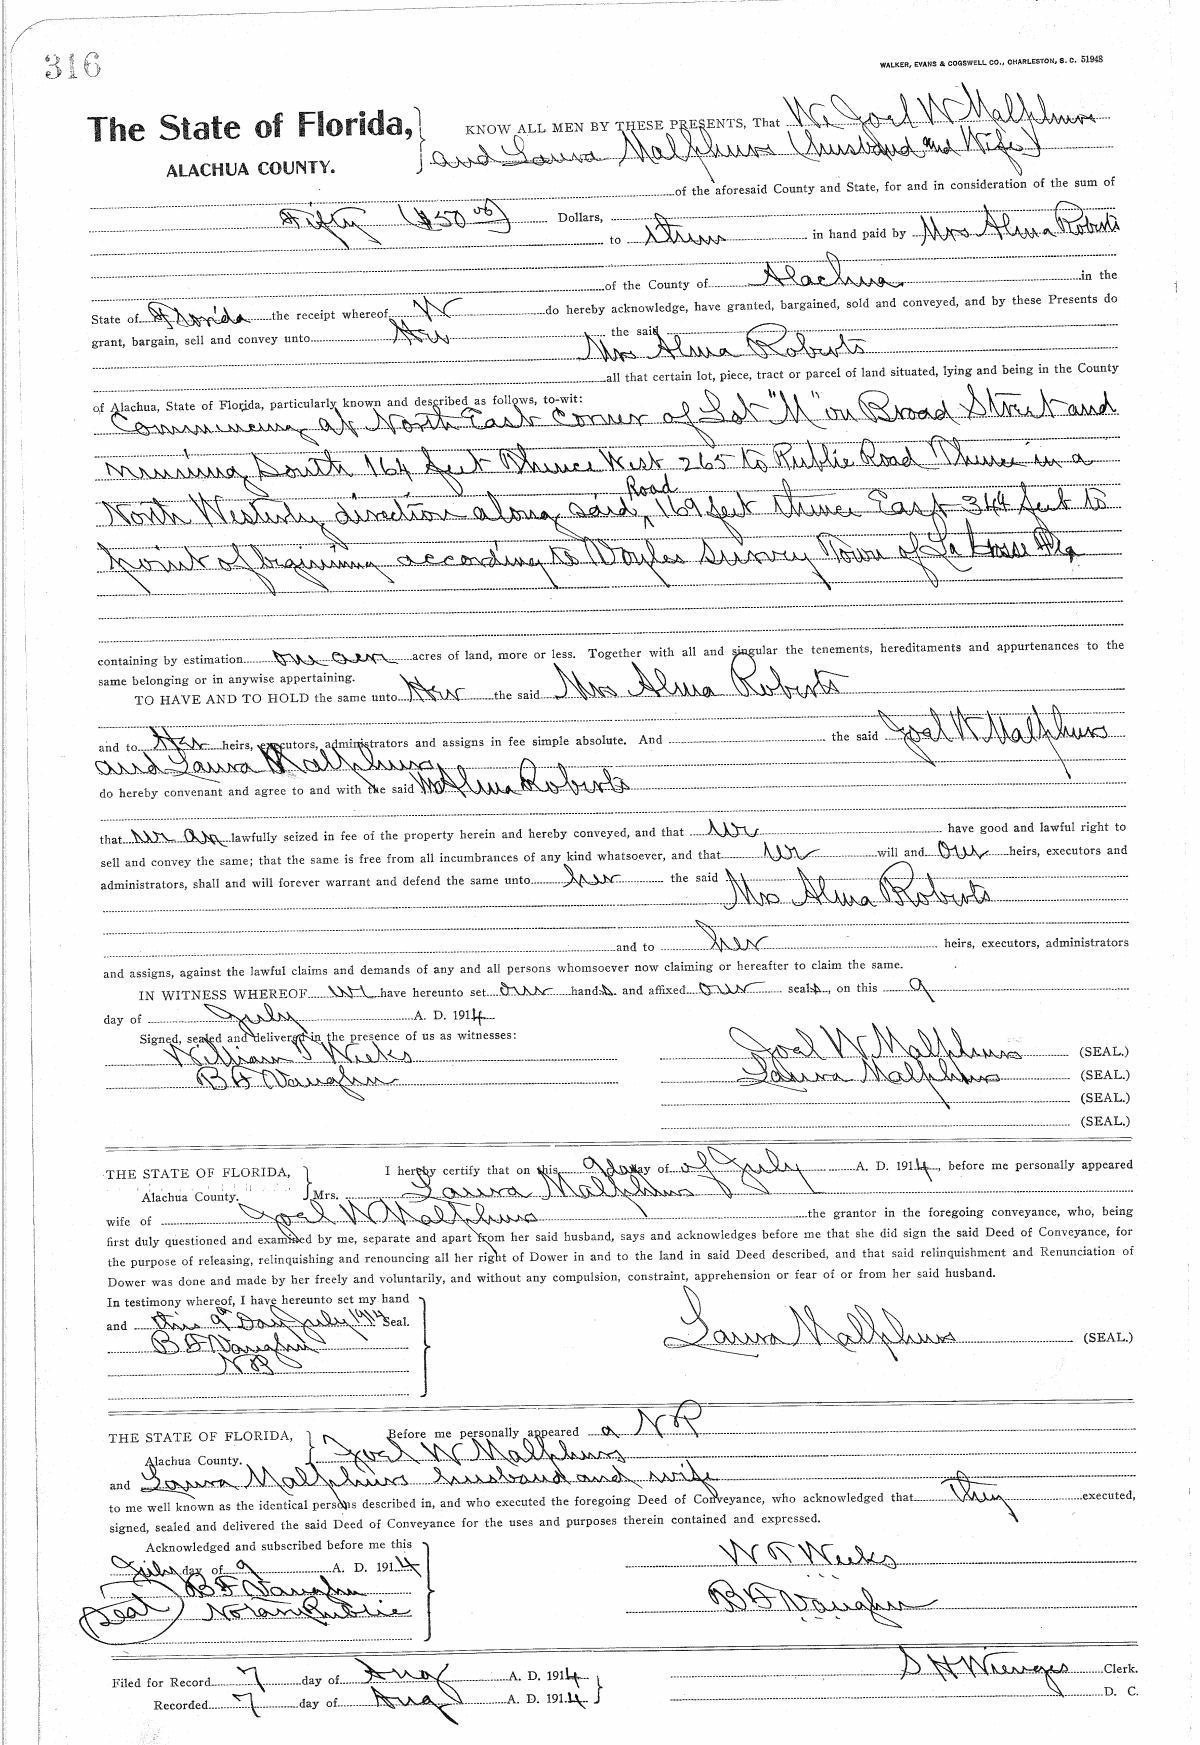 316
WALKER, EVANS & COGSWELL CO., CHARLESTON, S. C. 51948
The State of Florida,
ALACHUA COUNTY.
KNOW ALL MEN BY THESE PRESENTS, That We Joel W Malphurs
and Laura Malphurs (husband and Wife)
of the aforesaid County and State, for and in consideration of the sum of
Fifty ($50 00) Dollars,
to them in hand paid by Mrs Alma Roberts
of the County of Alachua in the
State of Florida the receipt whereof W do hereby acknowledge, have granted, bargained, sold and conveyed, and by these Presents do
grant, bargain, sell and convey unto Her the said
Mrs Alma Roberts
all that certain lot, piece, tract or parcel of land situated, lying and being in the County
of Alachua, State of Florida, particularly known and described as follows, to-wit:
Commencing at North East Corner of Lot "M" on Broad Street and
running South 164 feet Thence West 265 to Public Road Thence in a
North Westerly direction along said Road 169 feet thence East 344 feet to
point of beginning according to Doyles Survey Town of La Crosse Fla
containing by estimation one acre acres of land, more or less. Together with all and singular the tenements, hereditaments and appurtenances to the
same belonging or in anywise appertaining.
TO HAVE AND TO HOLD the same unto Her the said Mrs Alma Roberts
and to Her heirs, executors, administrators and assigns in fee simple absolute. And the said Joel W Malphurs
and Laura Malphurs
do hereby convenant and agree to and with the said Mrs Alma Roberts
that we are lawfully seized in fee of the property herein and hereby conveyed, and that we have good and lawful right to
sell and convey the same; that the same is free from all incumbrances of any kind whatsoever, and that we will and our heirs, executors and
administrators, shall and will forever warrant and defend the same unto her the said Mrs Alma Roberts
and to her heirs, executors, administrators
and assigns, against the lawful claims and demands of any and all persons whomsoever now claiming or hereafter to claim the same.
IN WITNESS WHEREOF we have hereunto set our hands and affixed our seals, on this 9
day of July A. D. 1914
Signed, sealed and delivered in the presence of us as witnesses:
William Weeks Joel W Malphurs (SEAL.)
B F Vaughn Laura Malphurs (SEAL.)
(SEAL.)
(SEAL.)
THE STATE OF FLORIDA, I hereby certify that on this 9 day of of July A. D. 1914, before me personally appeared
Alachua County. Mrs. Laura Malphurs
wife of Joel W Malphurs the grantor in the foregoing conveyance, who, being
first duly questioned and examined by me, separate and apart from her said husband, says and acknowledges before me that she did sign the said Deed of Conveyance, for
the purpose of releasing, relinquishing and renouncing all her right of Dower in and to the land in said Deed described, and that said relinquishment and Renunciation of
Dower was done and made by her freely and voluntarily, and without any compulsion, constraint, apprehension or fear of or from her said husband.
In testimony whereof, I have hereunto set my hand
and this 9th Day July 1914 Seal.
B F Vaughn
N P
Laura Malphurs (SEAL.)
THE STATE OF FLORIDA, Before me personally appeared a N P
Alachua County. Joel W Malphurs
and Laura Malphurs husband and wife
to me well known as the identical persons described in, and who executed the foregoing Deed of Conveyance, who acknowledged that they executed,
signed, sealed and delivered the said Deed of Conveyance for the uses and purposes therein contained and expressed.
Acknowledged and subscribed before me this
July day of 9 A. D. 1914
B F Vaughn
(Seal) Notary Public
W T Weeks
B F Vaughn
Filed for Record 7 day of Aug A. D. 1914
S H Wienges Clerk.
Recorded 7 day of Aug A. D. 1914
D. C.